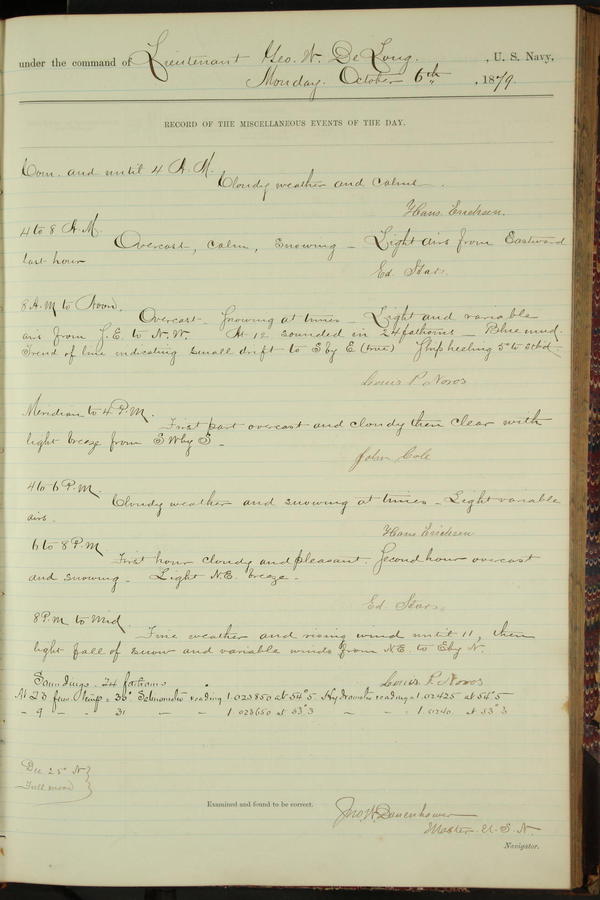 under the command of Lieutenant Geo. W. De Long. , U. S. Navy,
Monday. October 6th , 1879.
RECORD OF THE MISCELLANEOUS EVENTS OF THE DAY.
Com. and until 4 A.M.
Cloudy weather and calms.
Hans Erichsen.
4 to 8 A.M.
Overcast, calm, snowing – Light airs from Eastward
last hour
Ed. Starr.
8 A.M to Noon.
Overcast. Snowing at times – Light and variable
airs from S.E. to N.W. At 12 sounded in 24 fathoms – Blue mud.
Trend of line indicating small drift to S by E (true) Ship heeling 5° to stbd –
Louis P. Noros
Meridian to 4 P.M.
First part overcast and cloudy then clear with
light breeze from S W by S –
John Cole
4 to 6 P.M.
Cloudy weather and snowing at times – Light variable
airs.
Hans Erichsen
6 to 8 P.M
First hour cloudy and pleasant. Second hour overcast
and snowing – Light N.E. breeze –
Ed. Starr.
8 P.M to Mid.
Fine weather and rising wind until 11, then
light fall of snow and variable winds from NE. to E by N.
Louis P. Noros
Soundings. 24 fathoms.
At 23 fms temp = 30° Salinometer reading 1.023850 at 54°5 Hydrometer reading = 1.02425 at 54°5
" 9 " " 31 " " 1.023650 at 53°3 " " 1.0240. at 53°3
Dec 25° N }
Full moon }
Examined and found to be correct.
Jno W. Danenhower
Master U.S.N.
Navigator.